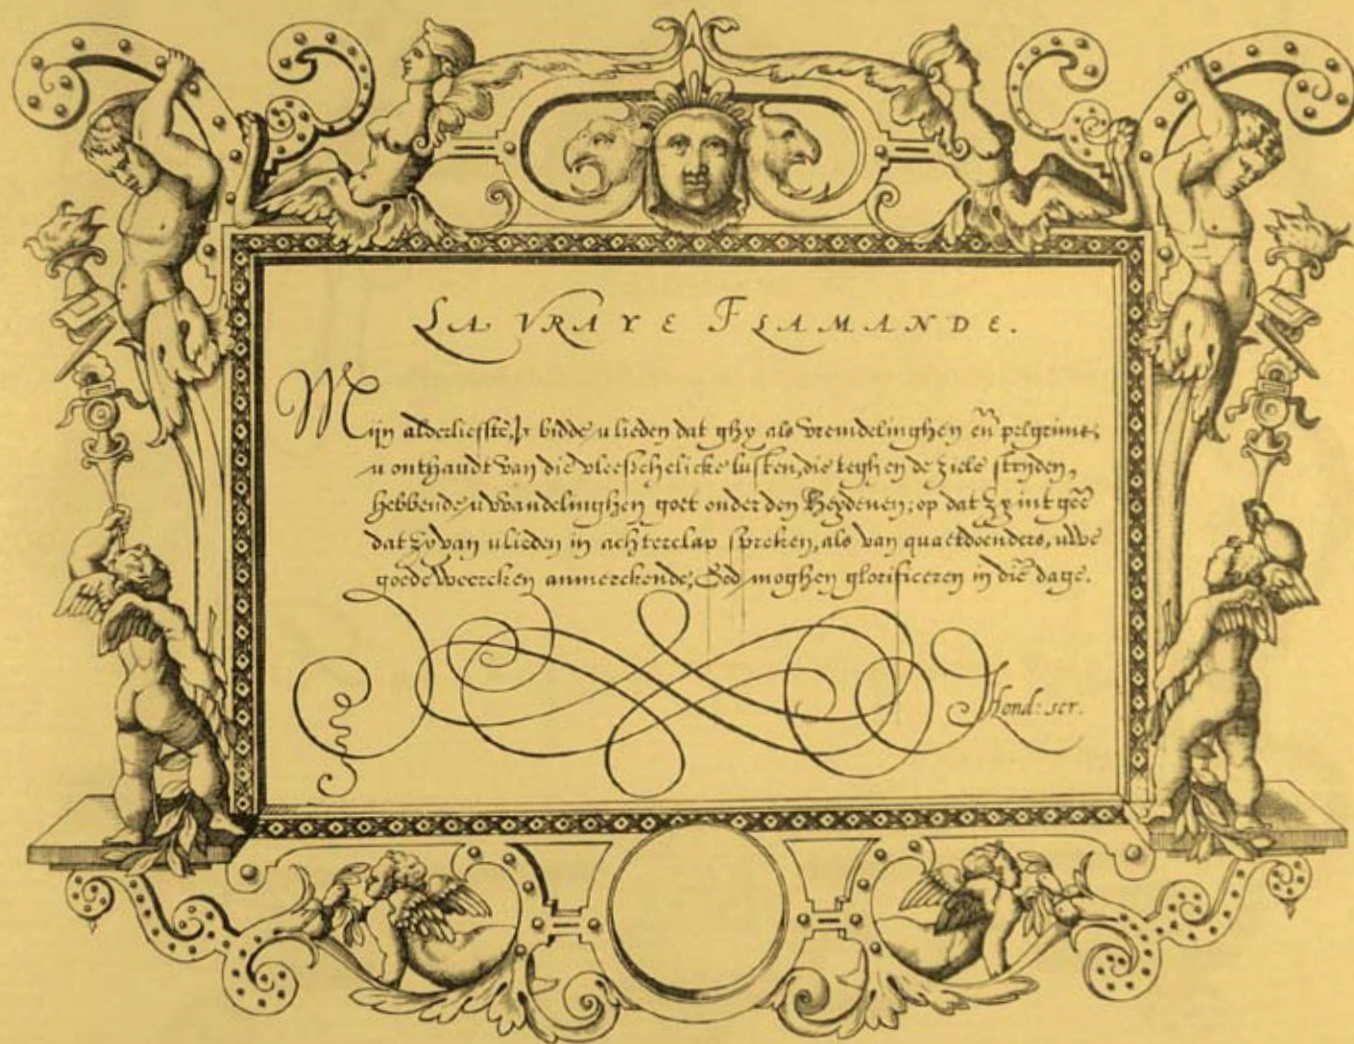 LA VRAYE FLAMANDE.
Mijn alderliefste, ic bidde u lieden dat ghy als vremdelinghen en̄ pelgrims,
u onthaudt van die vleeschelicke lusten, die teghen de ziele stryden,
hebbende u wandelinghen goet onder den Heydenen; op dat zy int gēe
dat zy van u lieden in achterclap spreken, als van quaetdoenders, uwe
goede weercken anmerckende, God moghen glorificeren in diē dage.
Hond: scr.